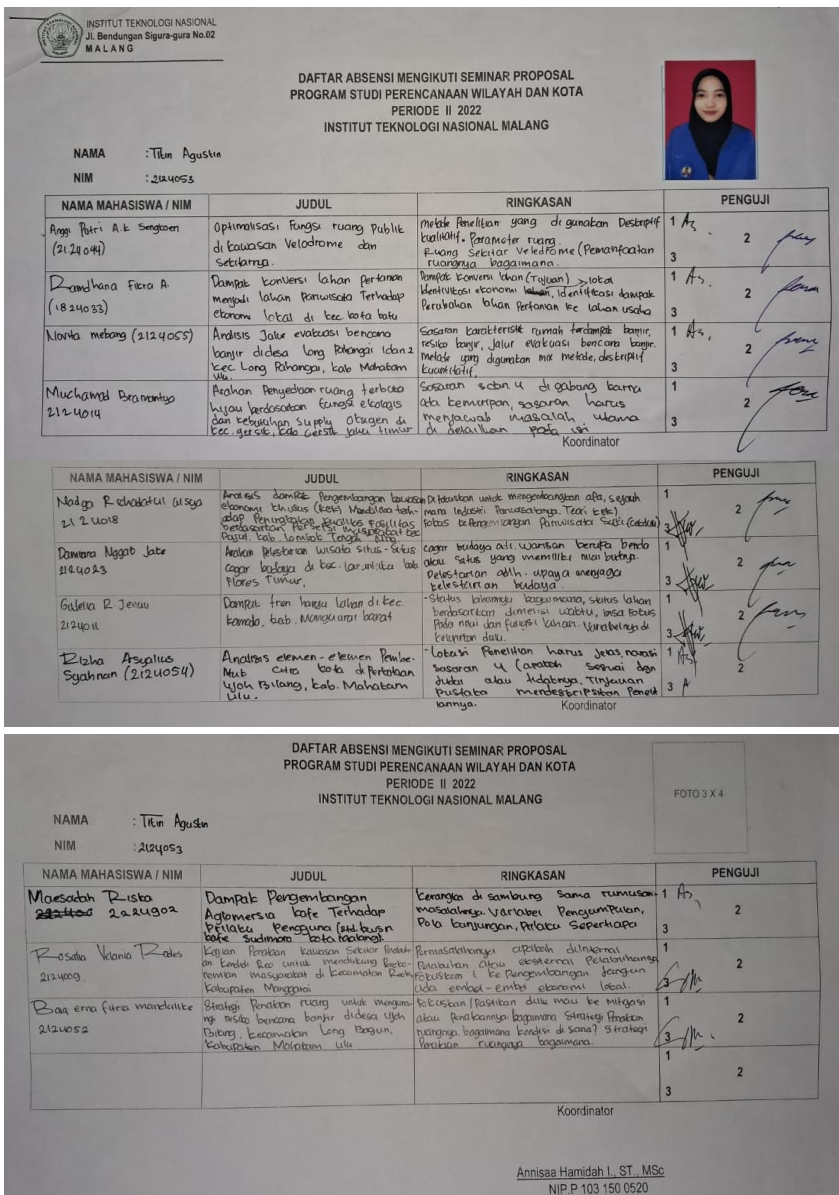 INSTITUT TEKNOLOGI NASIONAL
Jl. Bendungan Sigura-gura No.02
MALANG
DAFTAR ABSENSI MENGIKUTI SEMINAR PROPOSAL
PROGRAM STUDI PERENCANAAN WILAYAH DAN KOTA
PERIODE II 2022
INSTITUT TEKNOLOGI NASIONAL MALANG
NAMA : Titin Agustin
NIM : 2124053
NAMA MAHASISWA / NIM JUDUL RINGKASAN PENGUJI
Anggi Putri A.k Sengkoen
(2124094)
Optimalisasi Fungsi ruang Publik
di kawasan Velodrome dan
Sekitarnya.
metode Penelitian yang digunakan Deskriptif
kualitatif. Parameter ruang.
Ruang Sekitar Veledrome (Pemanfaatan
ruangnya bagaimana.
1 2
3
Ramdhana Fitra A.
(1824033)
Dampak konversi lahan Pertanian
menjadi lahan Pariwisata Terhadap
ekonomi lokal di kec. kota batu
Dampak konversi lahan (Tujuan) lokal
Identivikasi ekonomi, Identifikasi dampak
Perubahan lahan Pertanian ke lahan usaha
1 2
3
Novita mebang (2124055)
Analisis Jalur evakuasi bencana
banjir di desa Long Pahangai 1 dan 2
kec Long Pahangai, kab Mahakam
ulu.
Sasaran karakteristik rumah terdampak banjir,
resiko banjir, Jalur evakuasi bencana banjir.
metode yang digunakan mix metode, deskriptif
kuantitatif,
1 2
3
Muchamad Bramantyo
2124014
Arahan Penyediaan ruang terbuka
hijau berdasarkan fungsi ekologis
dan kebutuhan supply oksigen di
kec. gersik, kab Gersik Jawa timur
Sasaran 3 dan 4 di gabung karna
ada kemiripan, sasaran harus
menjawab masalah utama
di detailkan pada isi
1 2
3
Koordinator
NAMA MAHASISWA / NIM JUDUL RINGKASAN PENGUJI
2124018
Analisis dampak Pengembangan kawasan
ekonomi khusus (kek) Mandalika terh-
adap Peningkatan kualitas Fasilitas
berdasarkan Persepsi masyarakat kec
Pujut, kab. Lombok Tengah
Di fokuskan untuk mengembangkan apa, sejauh
mana Industri Pariwisatanya. Teori (kek)
fokus ke Pengembangan Pariwisata
1 2
3
2124023
Arahan Pelestarian wisata situs-situs
cagar budaya di kec. kab
Flores Timur,
cagar budaya adl. Warisan berupa benda
atau situs yang memiliki nilai
Pelestarian adlh. upaya menjaga
kelestarian budaya.
1 2
3
2124011
Dampak tren harga lahan di kec.
komodo, kab. Manggarai barat
-Status lahannya bagaimana, status lahan
berdasarkan dimensi waktu, bisa Fokus
Pada nilai dan fungsi lahan. Variabelnya di
dulu.
1 2
3
Rizha Asyalius
Syahnan (2124054)
Analisis elemen-elemen Pembe-
ntuk citra kota di Perkotaan
Ujoh Bilang, kab. Mahakam
Ulu.
-Lokasi Penelitian harus jelas, narasi
sasaran 4 (apakah sesuai dgn
Judul atau tidaknya, Tinjauan
Pustaka mendeskripsikan Peneli
tiannya.
1 2
3
Koordinator
DAFTAR ABSENSI MENGIKUTI SEMINAR PROPOSAL
PROGRAM STUDI PERENCANAAN WILAYAH DAN KOTA
PERIODE II 2022
INSTITUT TEKNOLOGI NASIONAL MALANG
FOTO 3 X 4
NAMA : Titin Agustin
NIM : 2124053
NAMA MAHASISWA / NIM JUDUL RINGKASAN PENGUJI
Maesadah Riska
2224902
Dampak Pengembangan
Aglomersia kafe Terhadap
Prilaku Pengguna (std. kasn
kafe Sudimoro kota malang).
kerangka di sambung sama rumusan
masalahnya. Variabel Pengumpulan,
Pola kunjungan, Prilaku Seperti apa
1 2
3
Rosalia Velania Rades
2124009.
Kajian Penataan kawasan Sekitar Pelabuh-
an Kendidi Reo untuk mendukung Pereko-
nomian masyarakat di Kecamatan Reok,
Kabupaten Manggarai
Permasalahannya apakah di internal
Pelabuhan atau eksternal Pelabuhannya
Fokuskan 1 ke Pengembangan Jangan
ada embel-embel ekonomi lokal.
1 2
3
Baiq erna fitria mandalika
2124052
Strategi Penataan ruang untuk mengura-
ngi resiko bencana banjir di desa Ujoh
Bilang, kecamatan Long Bagun,
Kabupaten Mahakam Ulu
Fokuskan/Pastikan dulu mau ke Mitigasi
atau Penataannya bagaimana Strategi Penataan
ruangnya bagaimana kondisi di sana? Strategi
Penataan ruangnya bagaimana.
1 2
3
1 2
3
Koordinator
Annisaa Hamidah I., ST., MSc
NIP.P 103 150 0520